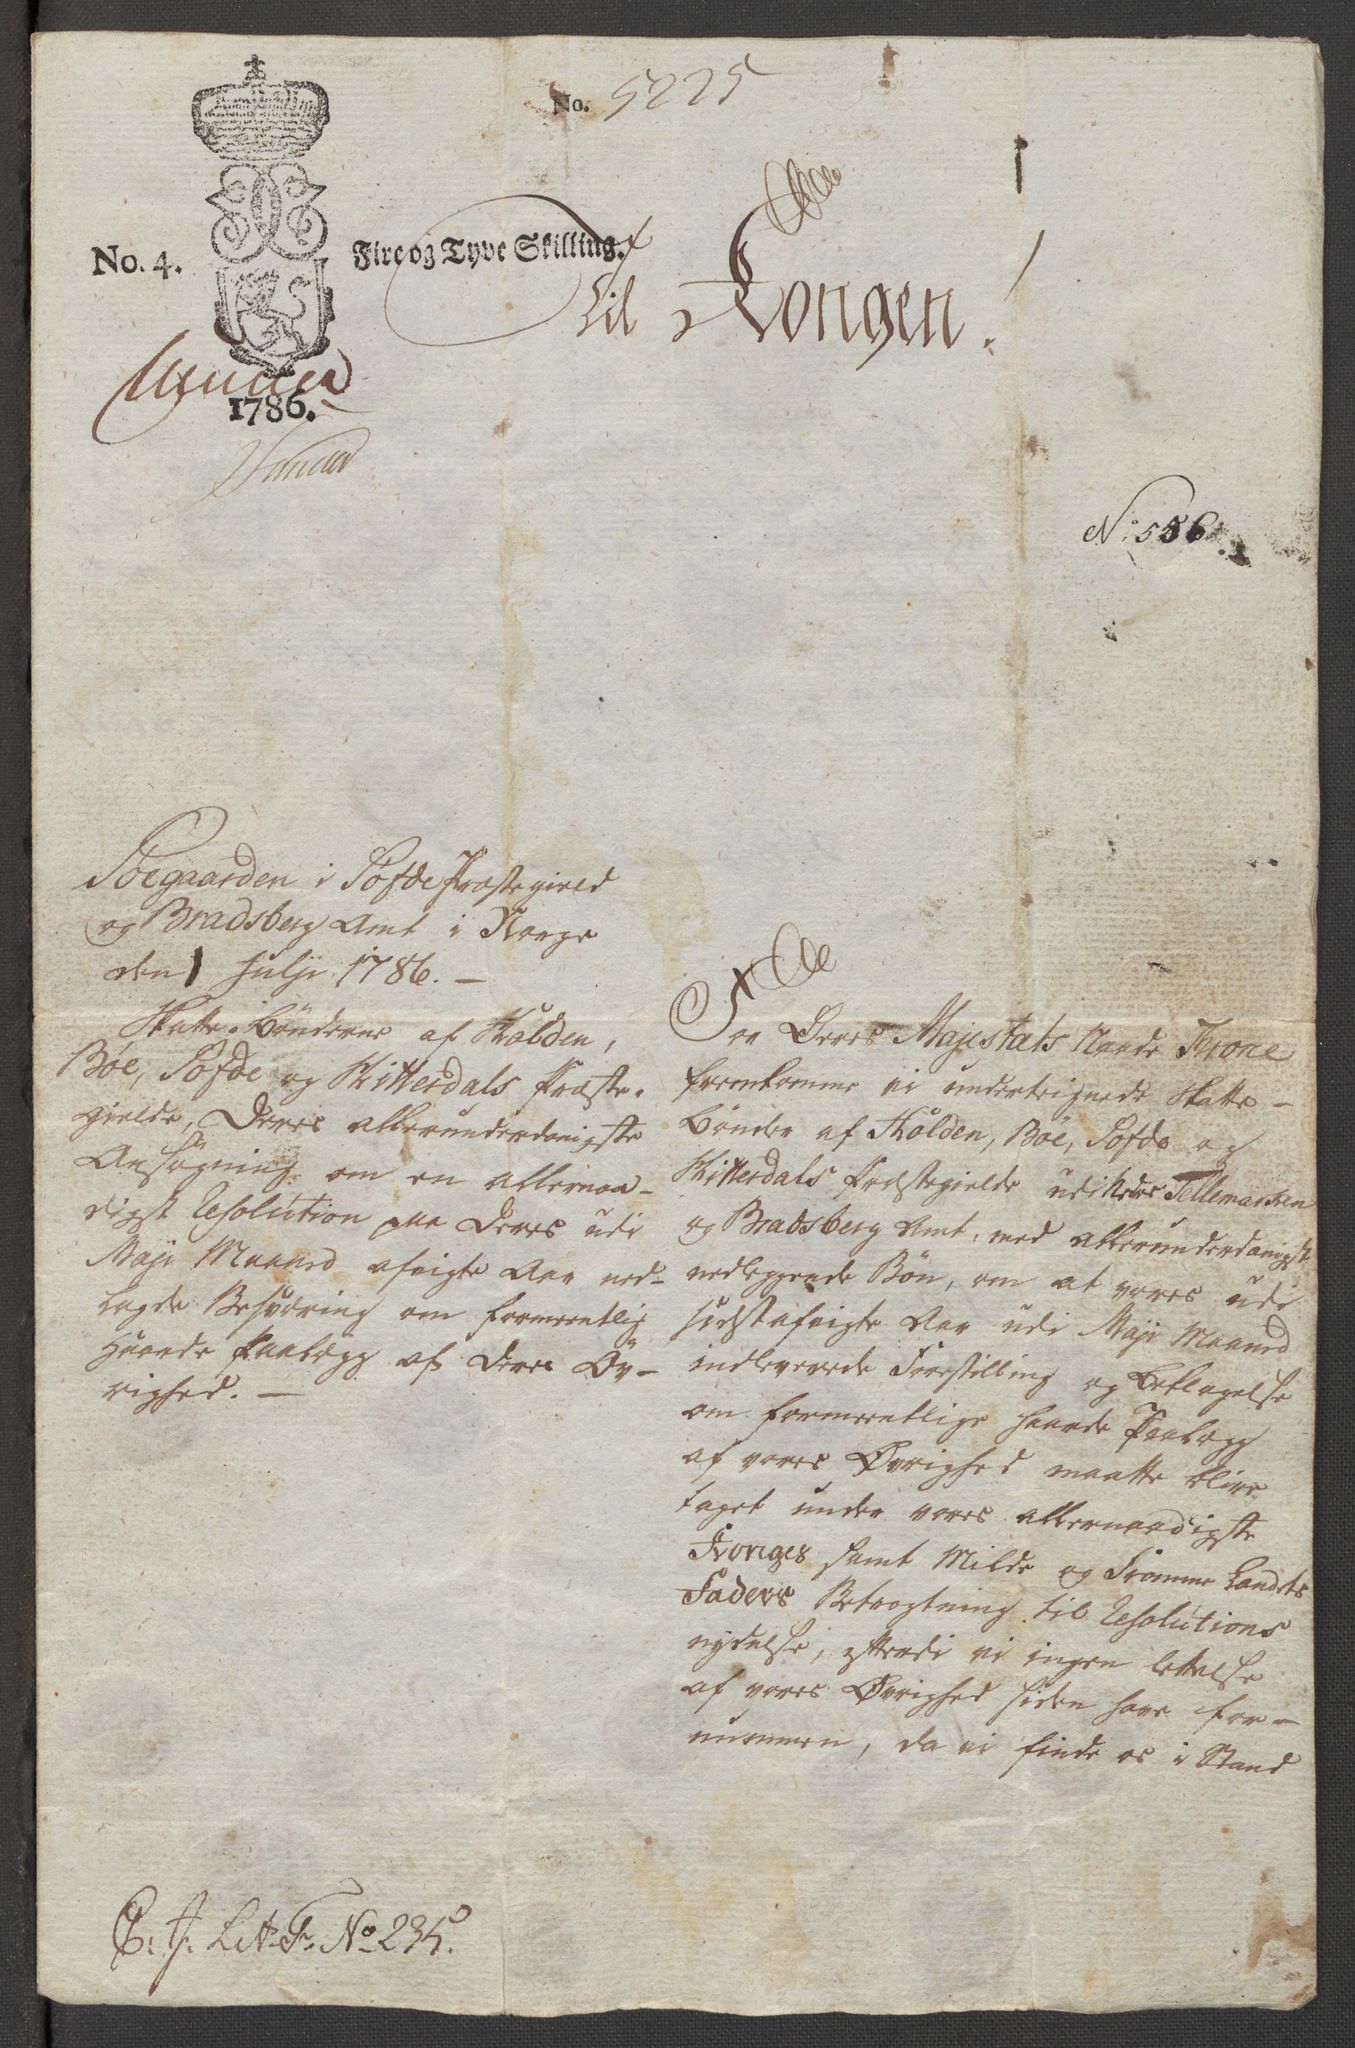 No. 5225
No. 4.
Fire og Tyve Skilling.
Til Kongen!
1786.
No: 556.
Søegaarden i Søfde Præstegield
og Bradsberg Amt i Norge
den 1 Julji 1786. —
Skatte-Bønderne af Holden,
Bøe, Søfde og Hitterdals Præste-
gjelde, Deres allerunderdanigste
Ansøgning om en allernaa-
digst Resolution paa Deres udi
Maji Maaned afvigte Aar ned-
lagde Besværing om formeentlig
haarde Paalægg af Deres Øv-
righed. —
For Deres Majestæts Naade Trone
fremkomme vi undertegnede Skatte-
Bønder af Holden, Bøe, Søfde og
Hitterdals Præstegjelde udi Neder Tellemarken
og Bradsberg Amt, med allerunderdanigst
nedleggende Bøn, om at vores udi
sidstafvigte Aar udi Maji Maaned
indleverede Forestilling og Beklagelse
om formeentlige haarde Paalægg
af vores Øvrighed maatte blive
taget under vores allernaadigste
Konges samt Milde og Fromme Landets
Faders Betragtning til Resolutions
nydelse, efterdi vi ingen lettelse
af vores Øvrighed siden have for-
nummen, da vi finde os i Stand
Lit. F. No 235.